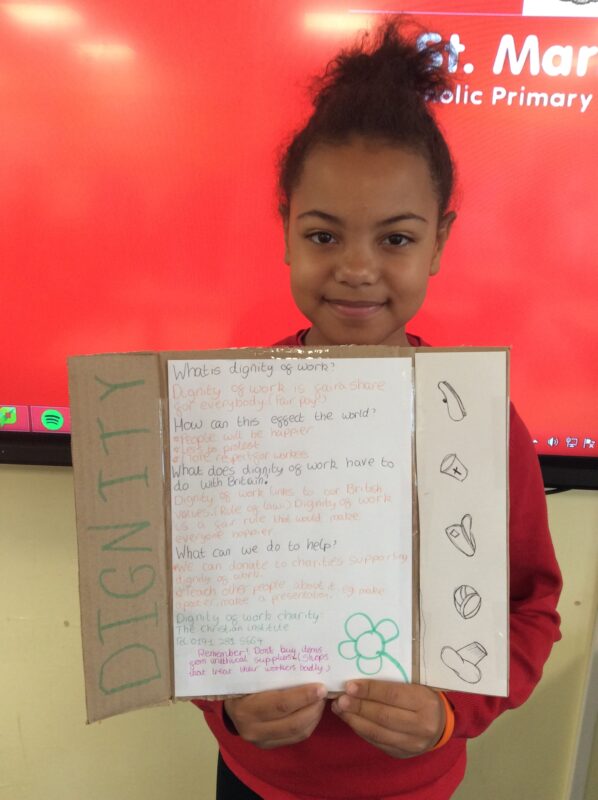 St. Mar
olic Primary
DIGNITY
What is dignity of work?
Dignity of work is fair share
for everybody. (Fair pay)
How can this effect the world?
People will be happier
Less to protest
More respect for workers
What does dignity of work have to
do with Britain?
Dignity of work links to our British
values. (Rule of law) Dignity of work
is a fair rule that would make
everyone happier
What can we do to help?
We can donate to charities supporting
dignity of work.
Teach other people about it eg. make
a poster, make a presentation.
Dignity of work charity:
The Christian institute
Tel: 0191 281 5664
Remember! Don't buy items
from unethical suppliers (shops
that treat their workers badly)